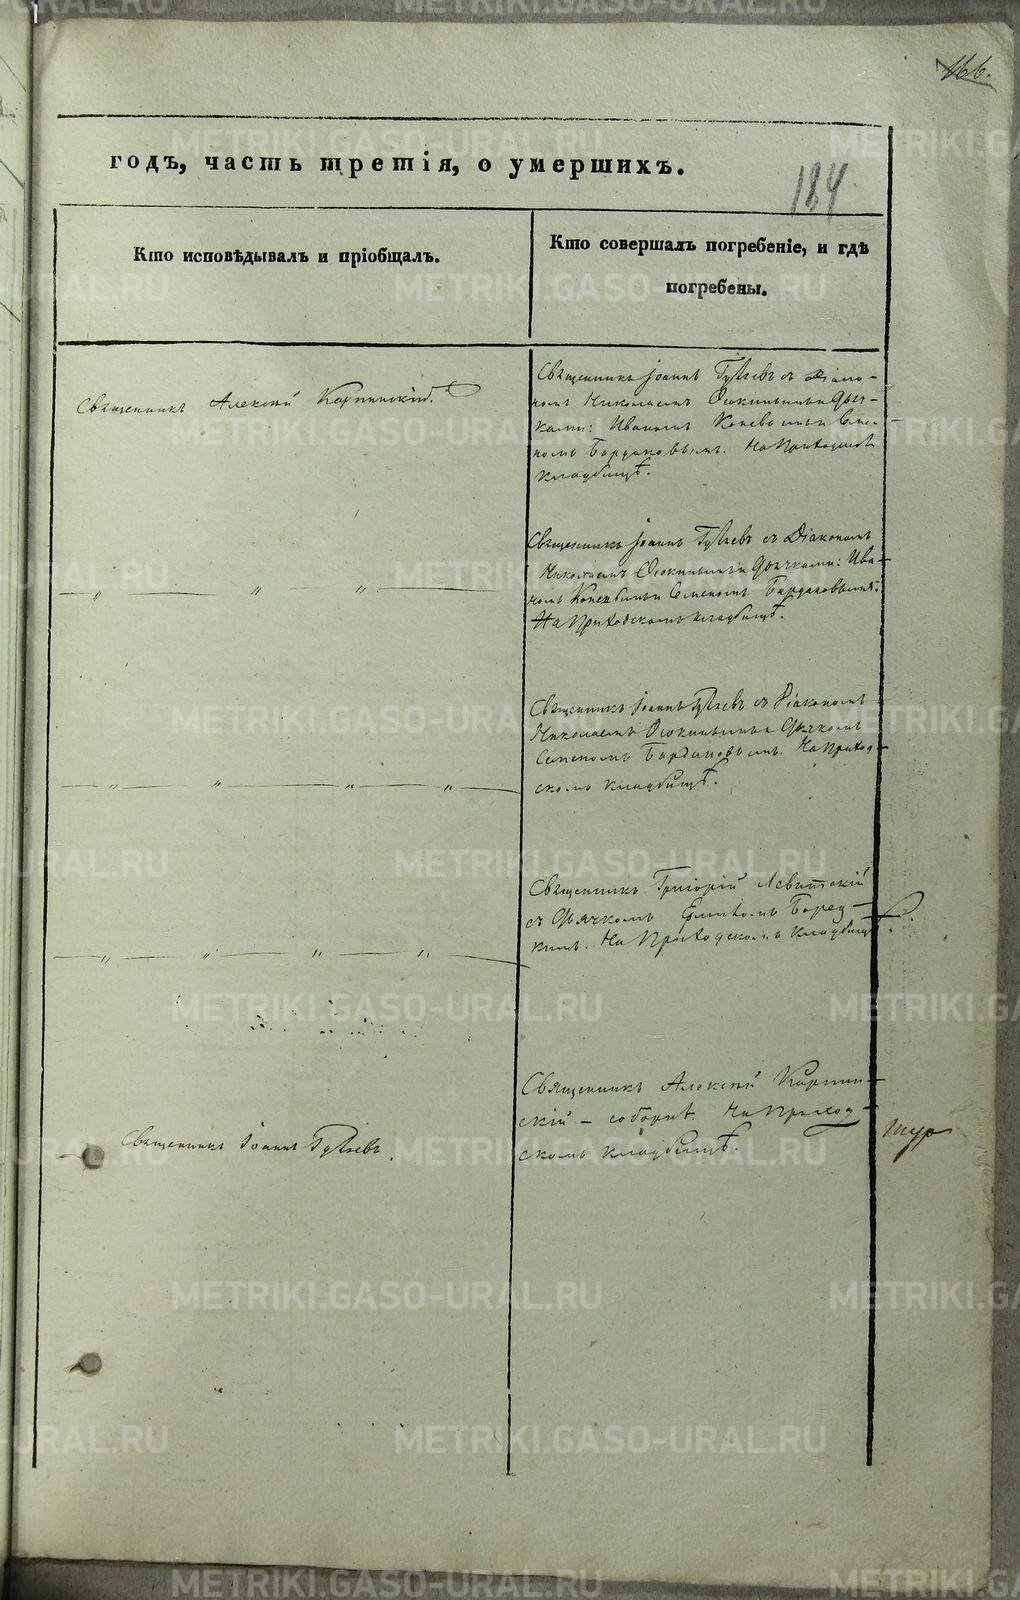 166.
годъ, часть третія, о умершихъ.
184
Кто исповѣдывалъ и пріобщалъ.
Кто совершалъ погребеніе, и гдѣ
погребены.
Священникъ Алексѣй Карпинскій.
Священникъ Іоаннъ Гуляевъ съ Діако-
номъ Николаемъ Осокинымъ и Дьяч-
ками: Иваномъ Коневымъ и Семе-
номъ Бардаковымъ. На Приходскомъ
кладбищѣ.
Священникъ Іоаннъ Гуляевъ съ Діакономъ
Николаемъ Осокинымъ и Дьячками: Ива-
номъ Коневымъ и Семеномъ Бардаковымъ.
На Приходскомъ кладбищѣ.
— „ — „ —
Священникъ Іоаннъ Гуляевъ съ Діакономъ
Николаемъ Осокинымъ и Дьячкомъ
Семеномъ Бардаковымъ. На Приход-
скомъ кладбищѣ.
— „ — „ — „ — „ —
Священникъ Григорій Левитскій
съ Дьячкомъ
кимъ. На Приходскомъ кладбищѣ.
— „ — „ — „ — „ —
Священникъ Алексѣй Карпин-
скій – соборнѣ. На Приход-
скомъ кладбищѣ.
Священникъ Іоаннъ Гуляевъ.
METRIKI.GASO-URAL.RU